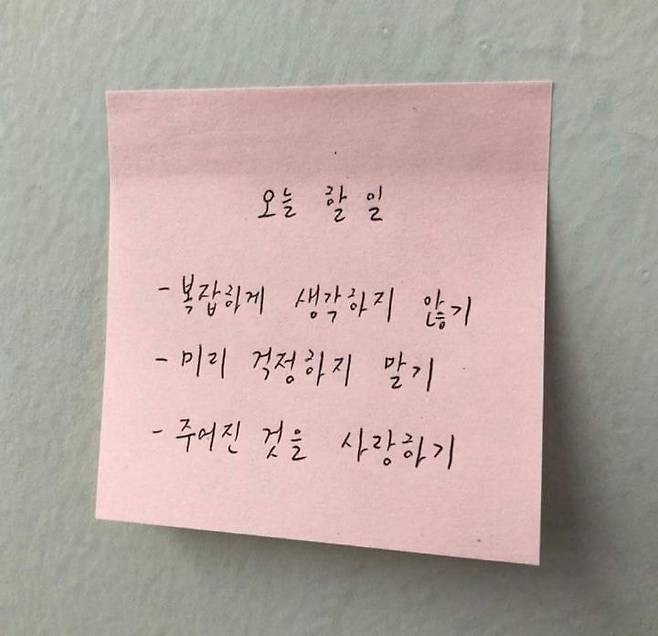 오늘 할 일
- 복잡하게 생각하지 않기
- 미리 걱정하지 말기
- 주어진 것을 사랑하기